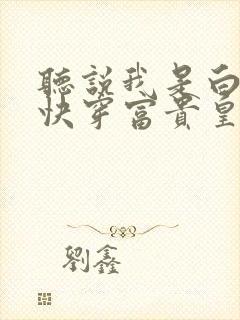 聽說我是白
快穿富貴皇
劉鑫